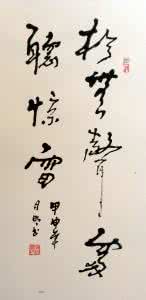 於無聲處
聽惊雷
甲申年